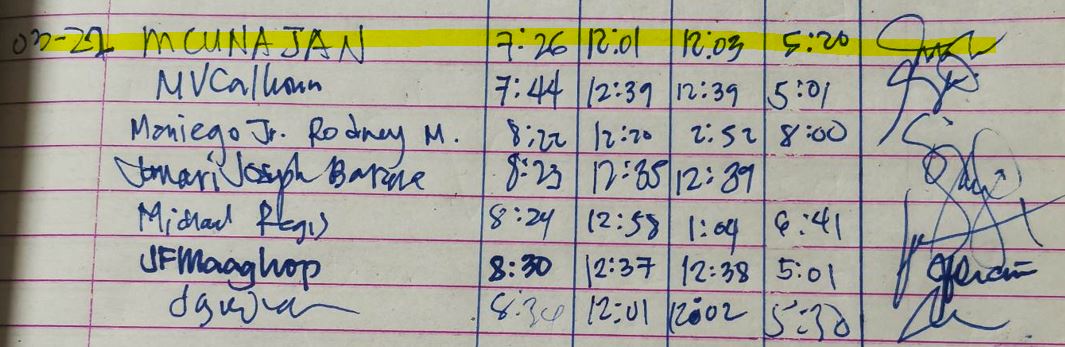 03-22 MCUNAJAN 7:26 12:01 12:03 5:20
MVCalhoun 7:44 12:39 12:39 5:01
Maniego Jr. Rodney M. 8:22 12:20 2:52 8:00
Jomari Joseph 8:23 12:35 12:39
Michael Regis 8:24 12:58 1:04 6:41
JFMaaghop 8:30 12:37 12:38 5:01
12:01 12:02 5:30